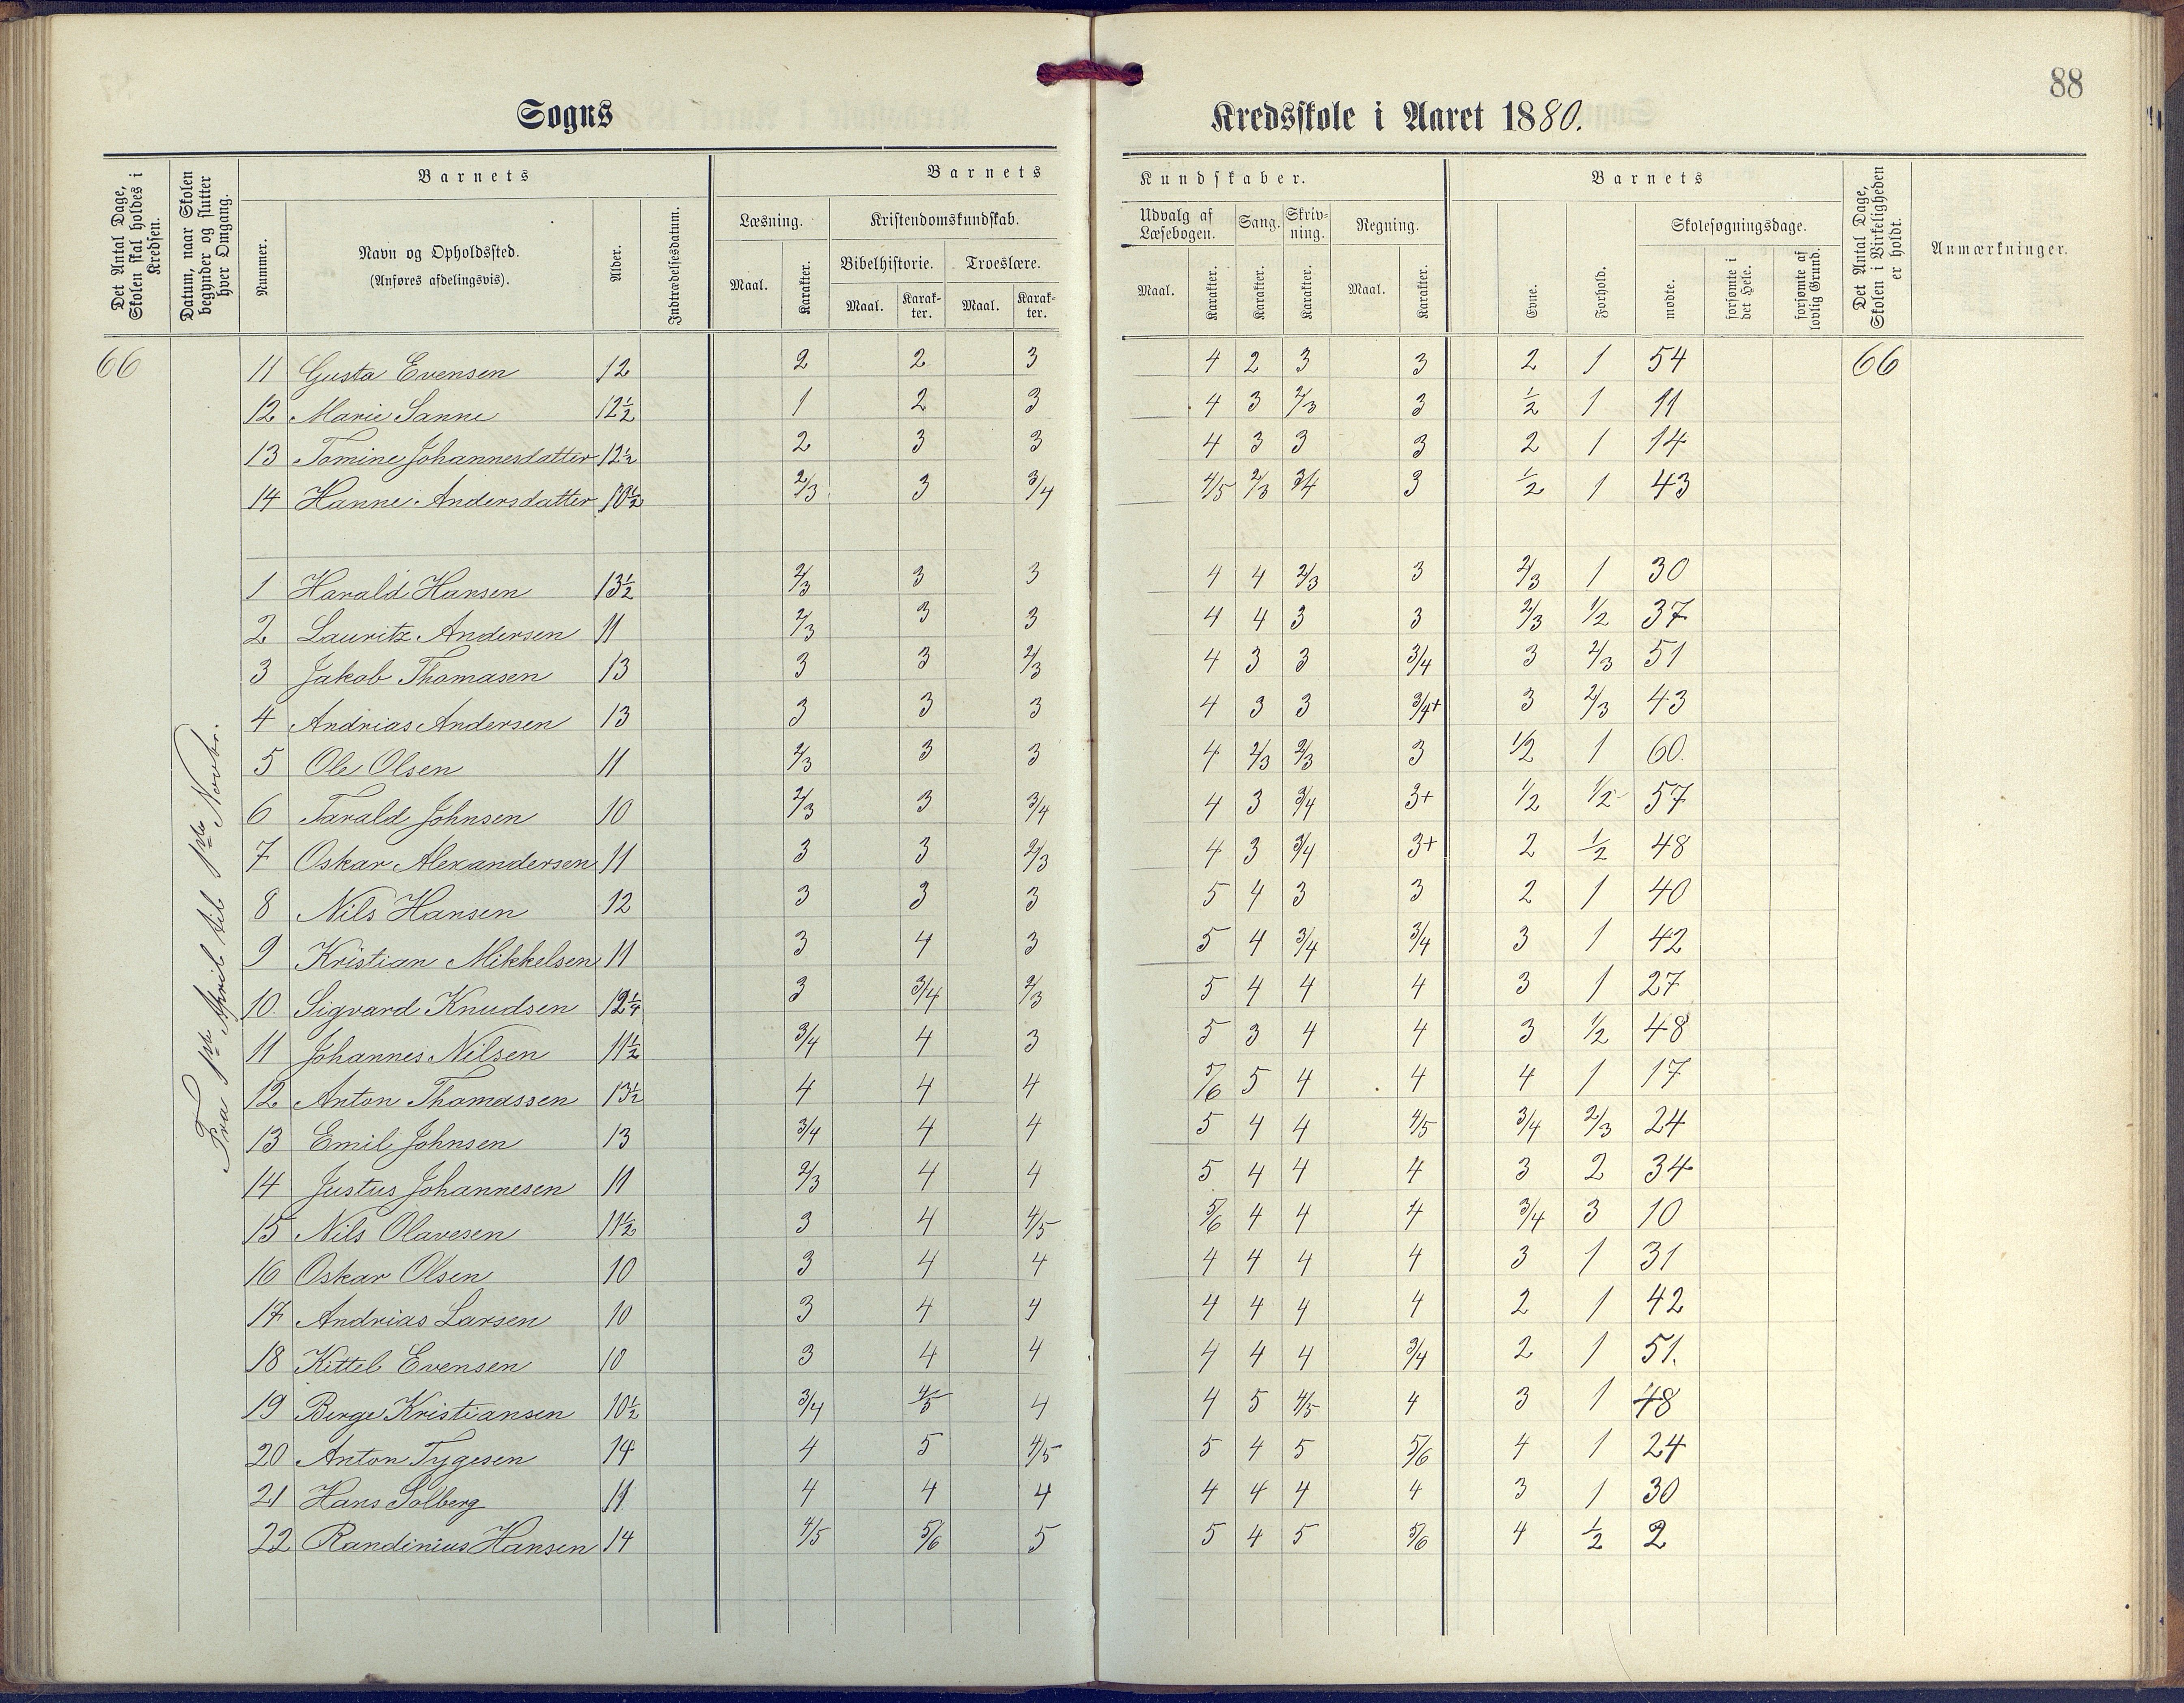 88
Sogns Kredsskole i Aaret 1880.
Det Antal Dage, Skolen skal holdes i Kredsen.
Datum, naar Skolen begynder og slutter hver Omgang.
Barnets
Nummer.
Navn og Opholdssted.
(Anføres afdelingsvis).
Alder.
Indtrædelsesdatum.
Barnets Kundskaber.
Læsning.
Maal. Karakter.
Kristendomskundskab.
Bibelhistorie. Troeslære.
Maal. Karakter. Maal. Karakter.
Udvalg af Læsebogen. Sang. Skrivning. Regning.
Maal. Karakter. Karakter. Karakter. Maal. Karakter.
Barnets
Evne. Forhold.
Skolesøgningsdage.
mødte. forsømte i det Hele. forsømte af lovlig Grund.
Det Antal Dage, Skolen i Virkeligheden er holdt.
Anmærkninger.
66 11 Gusta Evensen 12 2 2 3 4 2 3 3 2 1 54 66
12 Marie Sanne 12½ 1 2 3 4 3 2/3 3 ½ 1 11
13 Tomine Johannesdatter 12½ 2 3 3 4 3 3 3 2 1 14
14 Hanne Andersdatter 10½ 2/3 3 3/4 4/5 2/3 3/4 3 ½ 1 43
Fra 1ste April til 1ste Novbr.
1 Harald Hansen 13½ 2/3 3 3 4 4 2/3 3 2/3 1 30
2 Lauritz Andersen 11 2/3 3 3 4 4 3 3 2/3 1/2 37
3 Jakob Thomasen 13 3 3 2/3 4 3 3 3/4 3 2/3 51
4 Andrias Andersen 13 3 3 3 4 3 3 3/4+ 3 2/3 43
5 Ole Olsen 11 2/3 3 3 4 2/3 2/3 3 1/2 1 60.
6 Tarald Johnsen 10 2/3 3 3/4 4 3 3/4 3+ 1/2 1/2 57
7 Oskar Alexandersen 11 3 3 2/3 4 3 3/4 3+ 2 ½ 48
8 Nils Hansen 12 3 3 3 5 4 3 3 2 1 40
9 Kristian Mikkelsen 11 3 4 3 5 4 3/4 3/4 3 1 42
10. Sigvard Knudsen 12¼ 3 3/4 2/3 5 4 4 4 3 1 27
11 Johannes Nilsen 11½ 3/4 4 3 5 3 4 4 3 1/2 48
12 Anton Thomassen 13½ 4 4 4 5/6 5 4 4 4 1 17
13 Emil Johnsen 13 3/4 4 4 5 4 4 4/5 3/4 2/3 24
14 Justus Johannesen 11 2/3 4 4 5 4 4 4 3 2 34
15 Nils Olavesen 11½ 3 4 4/5 5/6 4 4 4 3/4 3 10
16 Oskar Olsen 10 3 4 4 4 4 4 4 3 1 31
17 Andrias Larsen 10 3 4 4 4 4 4 4 2 1 42
18 Kittel Evensen 10 3 4 4 4 4 4 3/4 2 1 51.
19 Berge Kristiansen 10½ 3/4 4/5 4 4 5 4/5 4 3 1 48
20 Anton Tygesen 14 4 5 4/5 5 4 5 5/6 4 1 24
21 Hans Solberg 11 4 4 4 4 4 4 4 3 1 30
22 Randinius Hansen 14 4/5 5/6 5 5 4 5 5/6 4 ½ 2